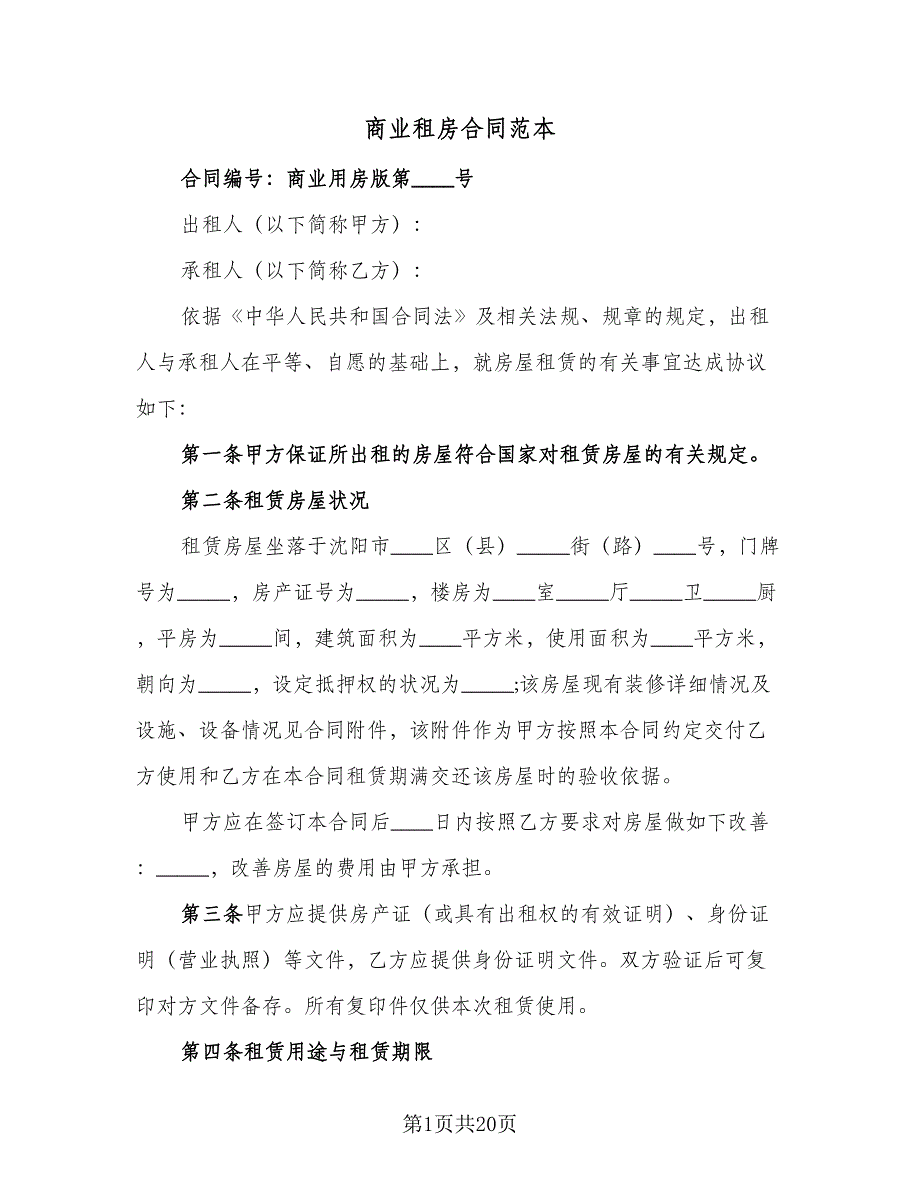 商业租房合同范本
合同编号：商业用房版第____号
出租人（以下简称甲方）：
承租人（以下简称乙方）：
依据《中华人民共和国合同法》及相关法规、规章的规定，出租
人与承租人在平等、自愿的基础上，就房屋租赁的有关事宜达成协议
如下：
第一条甲方保证所出租的房屋符合国家对租赁房屋的有关规定。
第二条租赁房屋状况
租赁房屋坐落于沈阳市____区（县）_____街（路）____号，门牌
号为_____，房产证号为_____，楼房为____室_____厅_____卫_____厨
，平房为_____间，建筑面积为____平方米，使用面积为____平方米，
朝向为_____，设定抵押权的状况为_____;该房屋现有装修详细情况及
设施、设备情况见合同附件，该附件作为甲方按照本合同约定交付乙
方使用和乙方在本合同租赁期满交还该房屋时的验收依据。
甲方应在签订本合同后____日内按照乙方要求对房屋做如下改善
：_____，改善房屋的费用由甲方承担。
第三条甲方应提供房产证（或具有出租权的有效证明）、身份证
明（营业执照）等文件，乙方应提供身份证明文件。双方验证后可复
印对方文件备存。所有复印件仅供本次租赁使用。
第四条租赁用途与租赁期限
第1页共20页